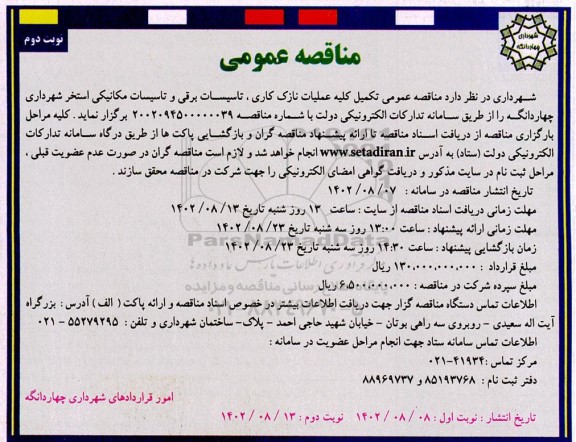 نوبت دوم
شهرداری
چهاردانگه
مناقصه عمومی
شهرداری در نظر دارد مناقصه عمومی تکمیل کلیه عملیات نازک کاری ، تاسیسات برقی و تاسیسات مکانیکی استخر شهرداری
چهاردانگه را از طریق سامانه تدارکات الکترونیکی دولت با شماره مناقصه ۲۰۰۲۰۹۴۵۰۰۰۰۰۰۳۹ برگزار نماید . کلیه مراحل
بارگزاری مناقصه از دریافت اسناد مناقصه تا ارائه پیشنهاد مناقصه گران و بازگشایی پاکت ها از طریق درگاه سامانه تدارکات
الکترونیکی دولت (ستاد) به آدرس www.setadiran.ir انجام خواهد شد و لازم است مناقصه گران در صورت عدم عضویت قبلی ،
مراحل ثبت نام در سایت مذکور و دریافت گواهی امضای الکترونیکی را جهت شرکت در مناقصه محقق سازند .
تاریخ انتشار مناقصه در سامانه : ۱۴۰۲/۰۸/۰۷
مهلت زمانی دریافت اسناد مناقصه از سایت : ساعت ۱۳ روز شنبه تاریخ ۱۴۰۲/۰۸/۱۳
مهلت زمانی ارائه پیشنهاد : ساعت ۱۳:۰۰ روز سه شنبه تاریخ ۱۴۰۲/۰۸/۲۳
زمان بازگشایی پیشنهاد : ساعت ۱۴:۳۰ روز سه شنبه تاریخ ۱۴۰۲/۰۸/۲۳
مبلغ قرارداد : ۱۳۰.۰۰۰.۰۰۰.۰۰۰ ریال
مبلغ سپرده شرکت در مناقصه : ۶.۵۰۰.۰۰۰.۰۰۰ ریال
اطلاعات تماس دستگاه مناقصه گزار جهت دریافت اطلاعات بیشتر در خصوص اسناد مناقصه و ارائه پاکت ( الف ) آدرس : بزرگراه
آیت اله سعیدی - روبروی سه راهی بوتان - خیابان شهید حاجی احمد - پلاک- ساختمان شهرداری و تلفن : ۵۵۲۷۹۲۹۵ - ۰۲۱
اطلاعات تماس سامانه ستاد جهت انجام مراحل عضویت در سامانه :
مرکز تماس :۴۱۹۳۴-۰۲۱
دفتر ثبت نام : ۸۵۱۹۳۷۶۸ و ۸۸۹۶۹۷۳۷
امور قراردادهای شهرداری چهاردانگه
تاریخ انتشار : نوبت اول : ۱۴۰۲/۰۸/۰۸ نوبت دوم : ۱۴۰۲/۰۸/۱۳
ParsNamadData